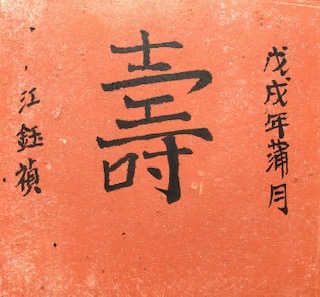 戊戌年蒲月
壽
江鈺禎